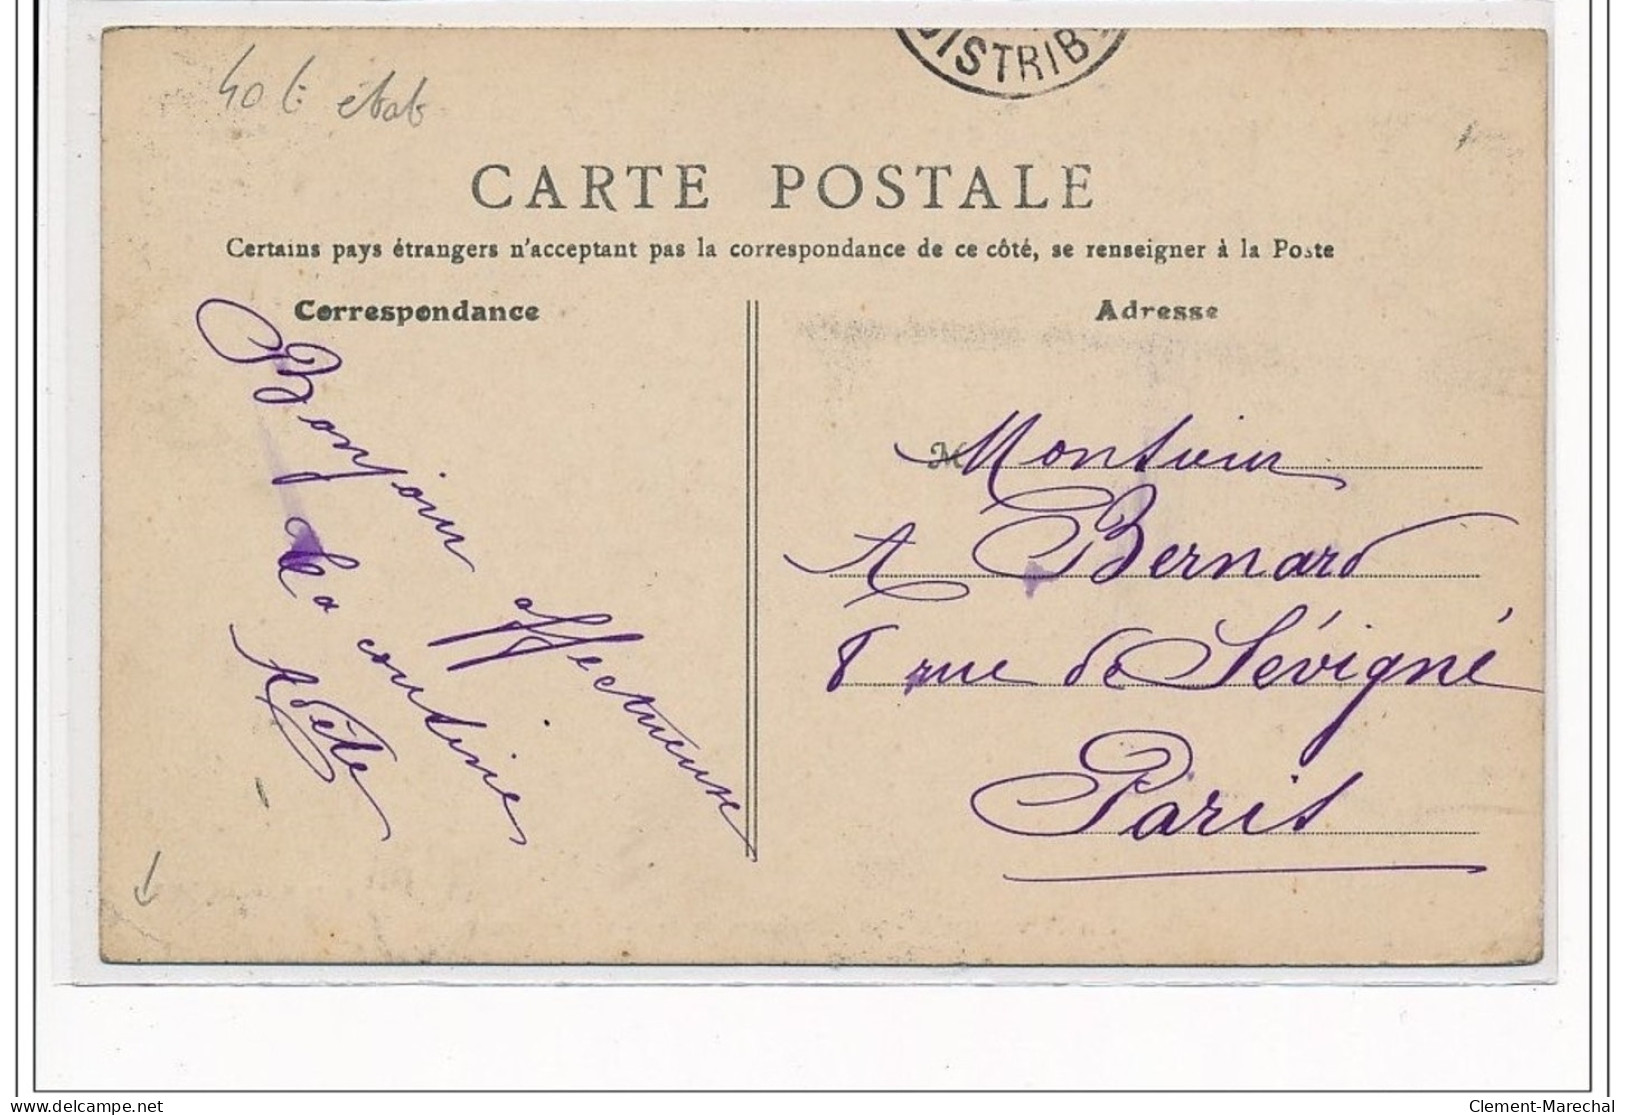 DISTRIB
40 E état
CARTE POSTALE
Certains pays étrangers n'acceptant pas la correspondance de ce côté, se renseigner à la Poste
Correspondance
Bonjour affectueuse
de la cousine
Adèle
Adresse
M Monsieur
A Bernard
8 rue de Sévigné
Paris
Clement-Marechal